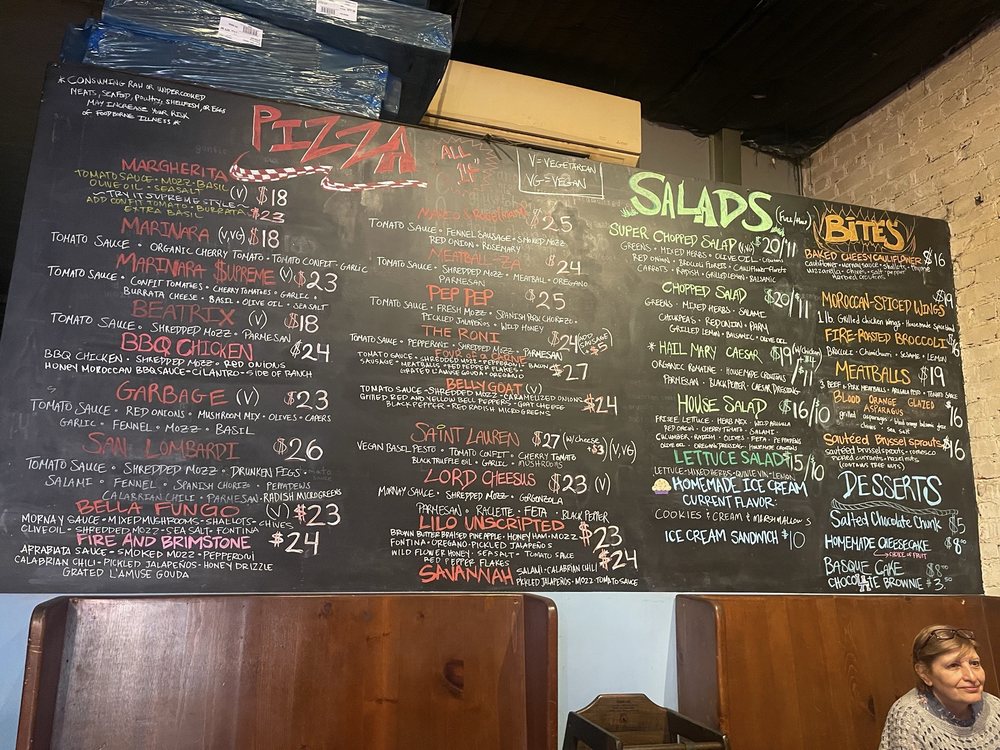 * CONSUMING RAW OR UNDERCOOKED
MEATS, SEAFOOD, POULTRY, SHELLFISH, OR EGGS
MAY INCREASE YOUR RISK
OF FOODBORNE ILLNESS *
PIZZA
ALL
14"
V=VEGETARIAN
VG=VEGAN
MARGHERITA (V) $18
TOMATO SAUCE · MOZZ · BASIL
OLIVE OIL · SEA SALT
TRY IT SUPREME STYLE
ADD CONFIT TOMATO · BURRATA $23
EXTRA BASIL
MARINARA (V,VG) $18
TOMATO SAUCE · ORGANIC CHERRY TOMATO · TOMATO CONFIT · GARLIC
MARINARA $UPREME (V) $23
TOMATO SAUCE · CONFIT TOMATOES · CHERRY TOMATOES · GARLIC ·
BURRATA CHEESE · BASIL · OLIVE OIL · SEA SALT
BEATRIX (V) $18
TOMATO SAUCE · SHREDDED MOZZ · PARMESAN
BBQ CHICKEN $24
BBQ CHICKEN · SHREDDED MOZZ · RED ONIONS
HONEY MOROCCAN BBQ SAUCE · CILANTRO · SIDE OF RANCH
GARBAGE (V) $23
TOMATO SAUCE · RED ONIONS · MUSHROOM MIX · OLIVES · CAPERS
GARLIC · FENNEL · MOZZ · BASIL
SAN LOMBARDI $26
TOMATO SAUCE · SHREDDED MOZZ · DRUNKEN FIGS ·
SALAMI · FENNEL · SPANISH CHORIZO · PEPPADEWS
CALABRIAN CHILI · PARMESAN · RADISH MICROGREENS
BELLA FUNGO (V) $23
MORNAY SAUCE · MIXED MUSHROOMS · SHALLOTS · CHIVES
OLIVE OIL · SHREDDED MOZZ · SEA SALT · FONTINA
FIRE AND BRIMSTONE $24
ARRABIATA SAUCE · SMOKED MOZZ · PEPPERONI
CALABRIAN CHILI · PICKLED JALAPEÑOS · HONEY DRIZZLE
GRATED L'AMUSE GOUDA
$25
TOMATO SAUCE · FENNEL SAUSAGE · SMOKED MOZZ
RED ONION · ROSEMARY
MEATBALL-ZA $24
TOMATO SAUCE · SHREDDED MOZZ · MEATBALL · OREGANO
PARMESAN
PEP PEP $25
TOMATO SAUCE · FRESH MOZZ · SPANISH PORK CHORIZO ·
PICKLED JALAPEÑOS · WILD HONEY
THE RONI $24
ADD SAUSAGE + $3
TOMATO SAUCE · PEPPERONI · SHREDDED MOZZ · PARMESAN
$27
TOMATO SAUCE · SHREDDED MOZZ · PEPPERONI · BACON
SAUSAGE · MEATBALLS · RED PEPPER FLAKES ·
GRATED L'AMUSE GOUDA · OREGANO
BELLY GOAT $24
TOMATO SAUCE · SHREDDED MOZZ · CARAMELIZED ONIONS
GRILLED RED AND YELLOW BELL PEPPERS · GOAT CHEESE
BLACK PEPPER · RED RADISH MICROGREENS
SAINT LAUREN $27 (W/CHEESE + $3) (V,VG)
VEGAN BASIL PESTO · TOMATO CONFIT · CHERRY TOMATO
BLACK TRUFFLE OIL · GARLIC · MUSHROOMS
LORD CHEESUS $23 (V)
MORNAY SAUCE · SHREDDED MOZZ · GORGONZOLA
PARMESAN · RACLETTE · FETA · BLACK PEPPER
LILO UNSCRIPTED $23
BROWN BUTTER BRAISED PINEAPPLE · HONEY HAM · MOZZ
FONTINA · OREGANO · PICKLED JALAPEÑOS
WILD FLOWER HONEY · SEA SALT · TOMATO SAUCE
RED PEPPER FLAKES
SAVANNAH $24
SALAMI · CALABRIAN CHILI
PICKLED JALAPEÑOS · MOZZ TOMATO SAUCE
SALADS (FULL/HALF)
SUPER CHOPPED SALAD (V,VG) $20/11
GREENS · MIXED HERBS · OLIVE OIL ·
RED ONION · BROCCOLI FLORETS · CAULIFLOWER FLORETS
CARROTS · RADISH · GRILLED LEMON · BALSAMIC
CHOPPED SALAD $20/$11
GREENS · MIXED HERBS · SALAMI
CHICKPEAS · RED ONION · PARM
GRILLED LEMON · BALSAMIC · OLIVE OIL
* HAIL MARY CAESAR $19/$11
ORGANIC ROMAINE · HOMEMADE CROUTONS
PARMESAN · BLACK PEPPER · CAESAR DRESSING
HOUSE SALAD $16/10
FRISEE LETTUCE · HERB MIX · WILD ARUGULA
PEPQUINOS · CHERRY TOMATO · SALAMI ·
CUCUMBER · RADISH · OLIVES · FETA · PEPPADEWS
OLIVE OIL · OREGANO DRESSING · HOMEMADE CROUTONS
LETTUCE SALAD $15/10
LETTUCE · MIXED HERBS · LEMON
HOMEMADE ICE CREAM
CURRENT FLAVOR:
COOKIES & CREAM & MARSHMALLOWS
ICE CREAM SANDWICH $10
BITES
BAKED CHEESY CAULIFLOWER $16
cauliflower · mornay sauce · shallots · thyme
mozzarella · chives · salt · pepper
MOROCCAN-SPICED WINGS $19
1 lb. Grilled chicken wings · Homemade spice blend
FIRE-ROASTED BROCCOLI $16
BROCCOLI · CHIMICHURRI · SESAME · LEMON
MEATBALLS $19
3 BEEF & PORK MEATBALLS · TOMATO SAUCE
BLOOD ORANGE GLAZED
ASPARAGUS $16
grilled asparagus · blood orange balsamic glaze
chives · sea salt
Sautéed Brussel sprouts $16
sautéed brussel sprouts · romesco
pickled currants · hazelnuts
(contains tree nuts)
DESSERTS
Salted Chocolate Chunk $5
HOMEMADE CHEESECAKE $8.00
CHOICE OF FRUIT
BASQUE CAKE $8.00
CHOCOLATE BROWNIE $3.50